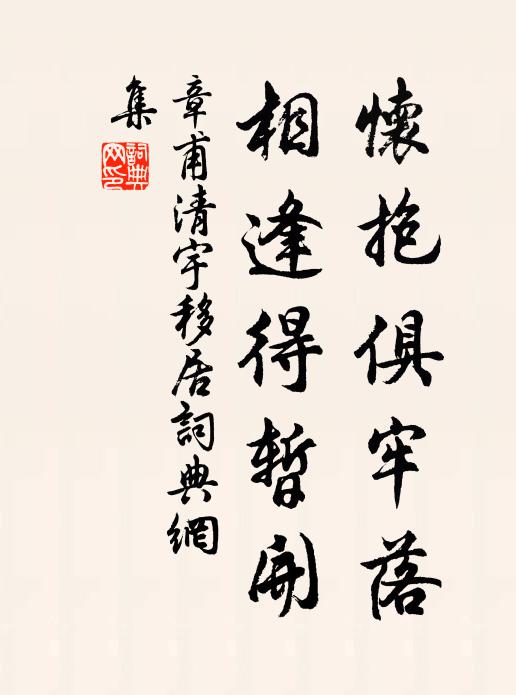 懷抱俱牢落
相逢得暫開
章甫清宇移居詞典網
集
詞典
网印